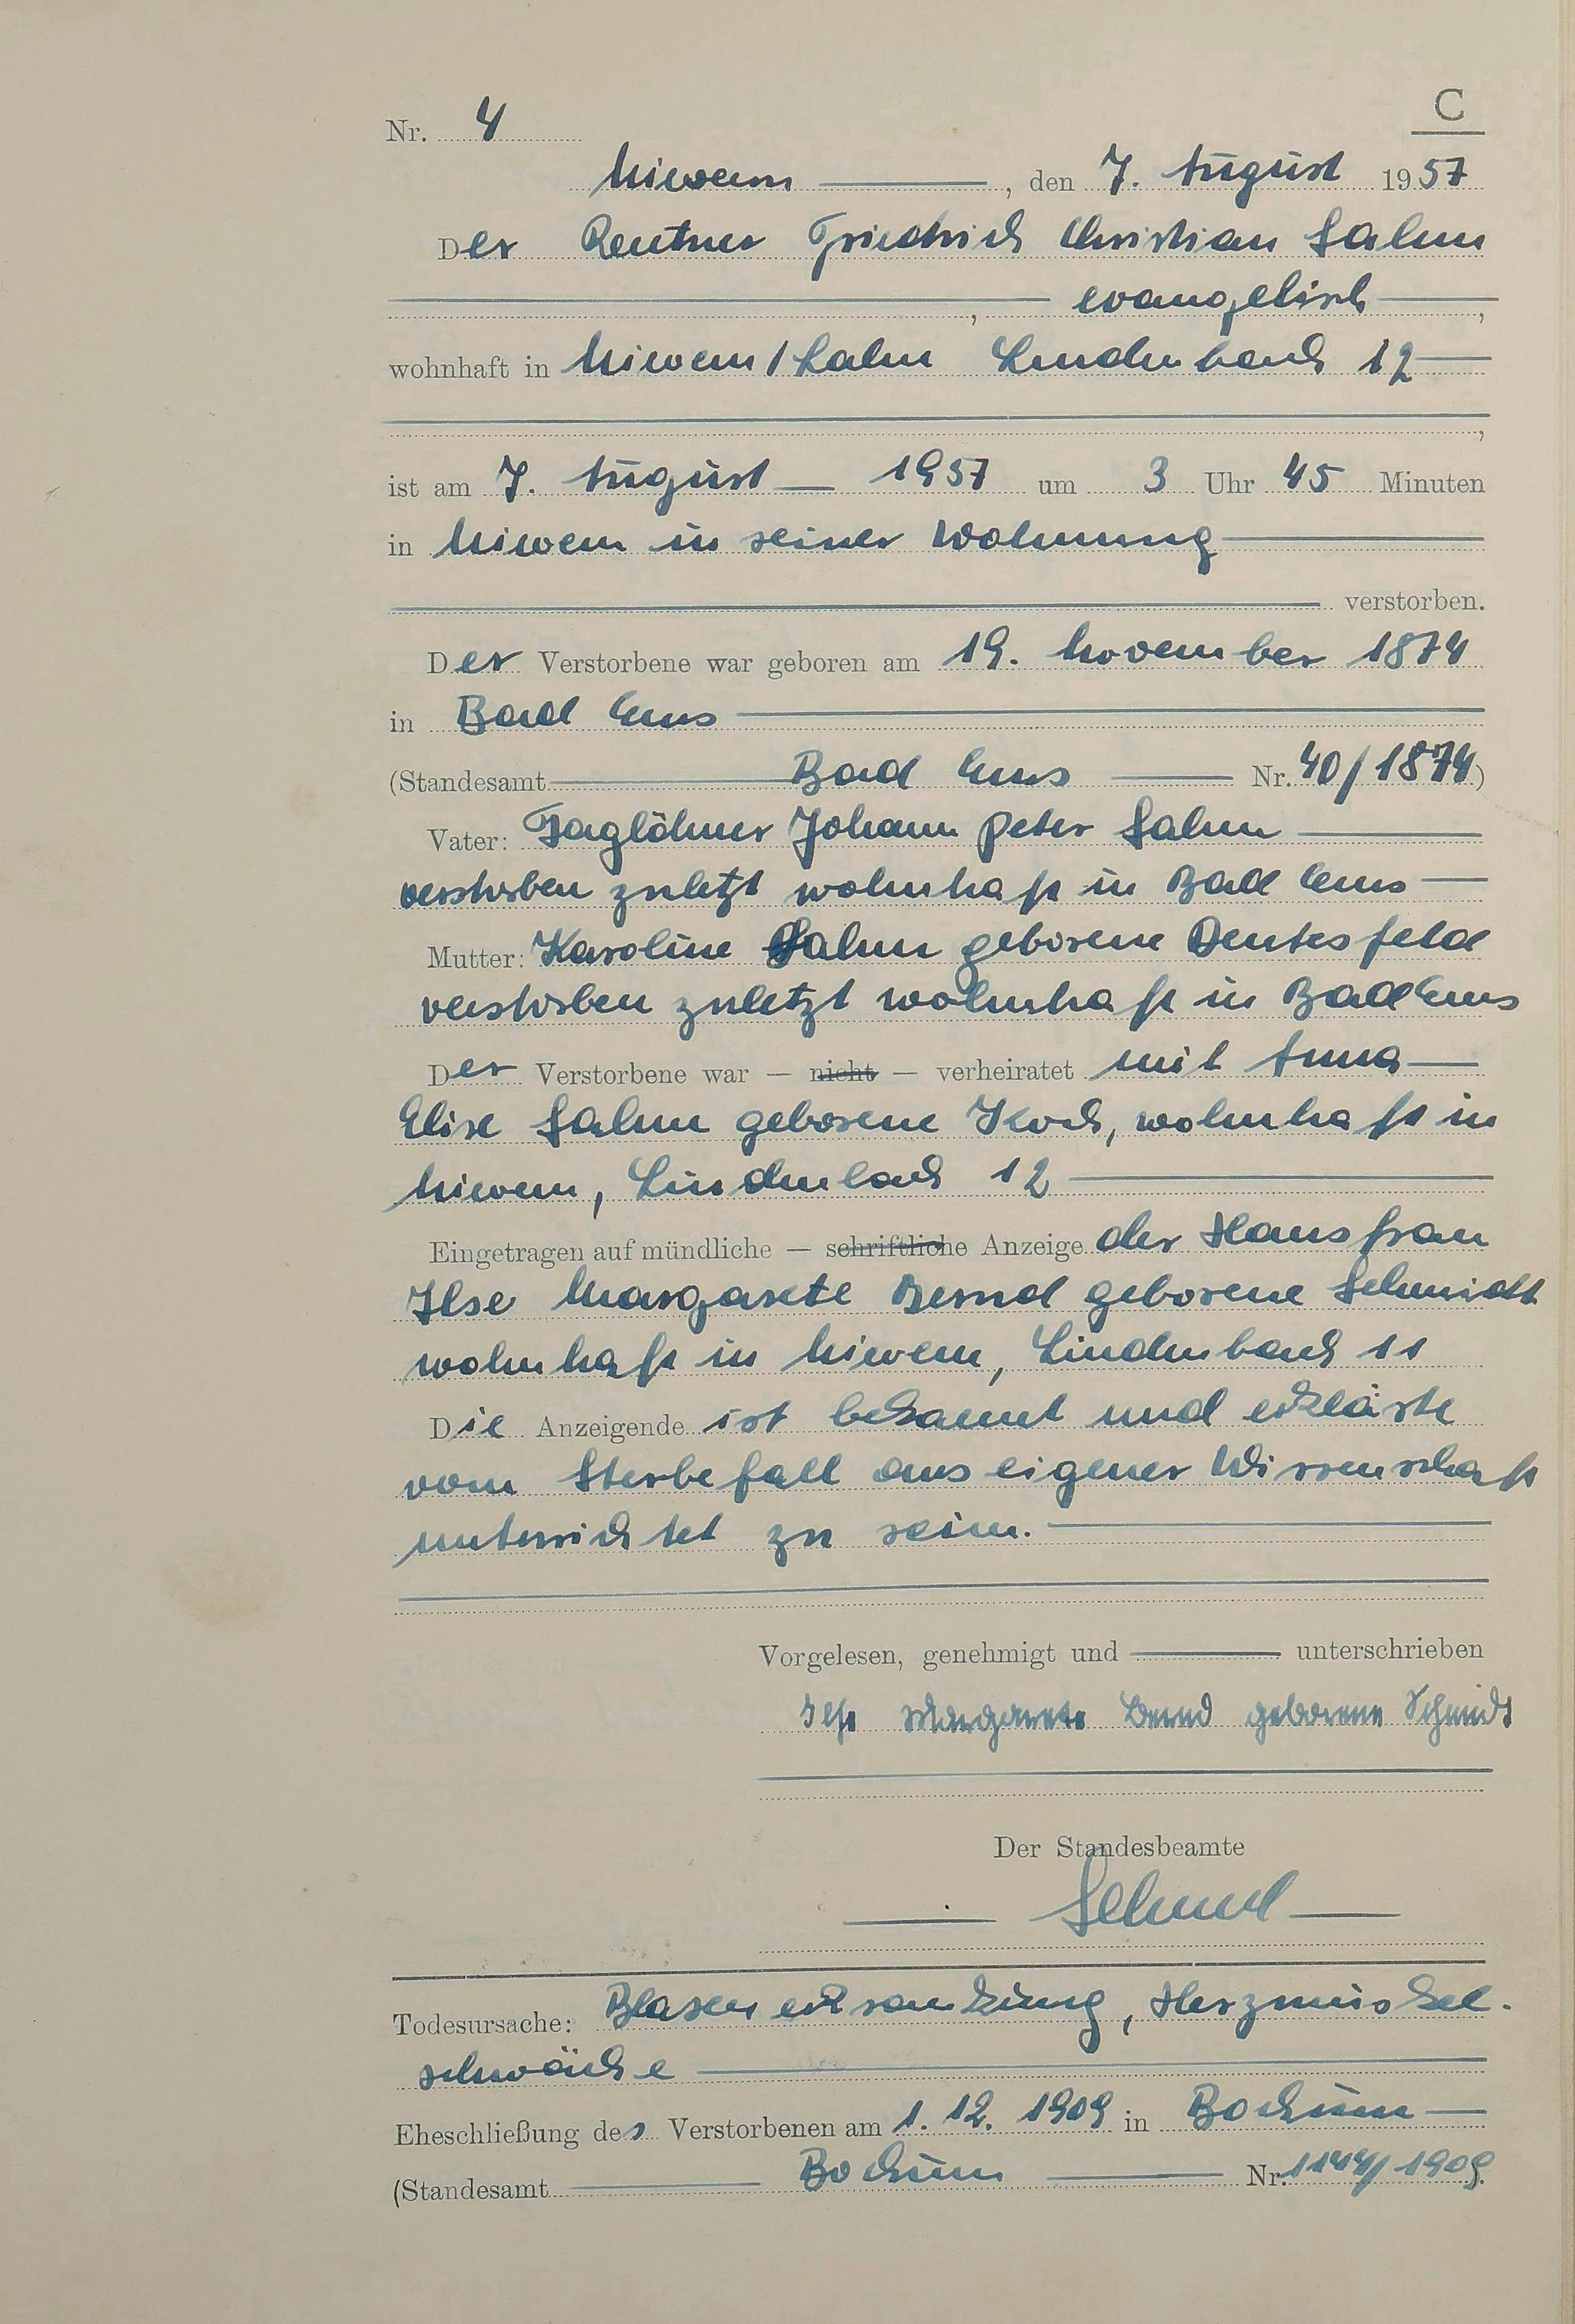 C
Nr. 4
Nievern, den 7. August 1957
Der Rentner Friedrich Christian Salm
, evangelisch,
wohnhaft in Nievern/Lahn Lindenbach 12
,
ist am 7. August 1957 um 3 Uhr 45 Minuten
in Nievern in seiner Wohnung
verstorben.
Der Verstorbene war geboren am 19. November 1874
in Bad Ems
(Standesamt Bad Ems Nr. 40/1874)
Vater: Taglöhner Johann Peter Salm
verstorben zuletzt wohnhaft in Bad Ems
Mutter: Karoline Salm geborene
verstorben zuletzt wohnhaft in Bad Ems
Der Verstorbene war — nicht — verheiratet mit Anna
Elise Salm geborene Koch, wohnhaft in
Nievern, Lindenbach 12
Eingetragen auf mündliche — schriftliche Anzeige der Hausfrau
Ilse Margarete Bernd geborene Schmidt
wohnhaft in Nievern, Lindenbach 11
Die Anzeigende ist bekannt und erklärte
vom Sterbefall aus eigener Wissenschaft
unterrichtet zu sein.
Vorgelesen, genehmigt und unterschrieben
Ilse Margarete Bernd geborene Schmidt
Der Standesbeamte
Todesursache: Blasenerkrankung, Herzmuskel-
schwäche
Eheschließung des Verstorbenen am 1. 12. 1909 in Bochum
(Standesamt Bochum Nr. 1144/1909.